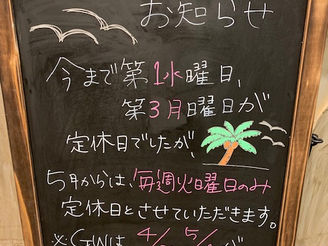 お知らせ
今まで第1水曜日、
第3月曜日が
定休日でしたが、
5月からは、毎週火曜日のみ
定休日とさせていただきます。
※GWは 4/ 5/ が